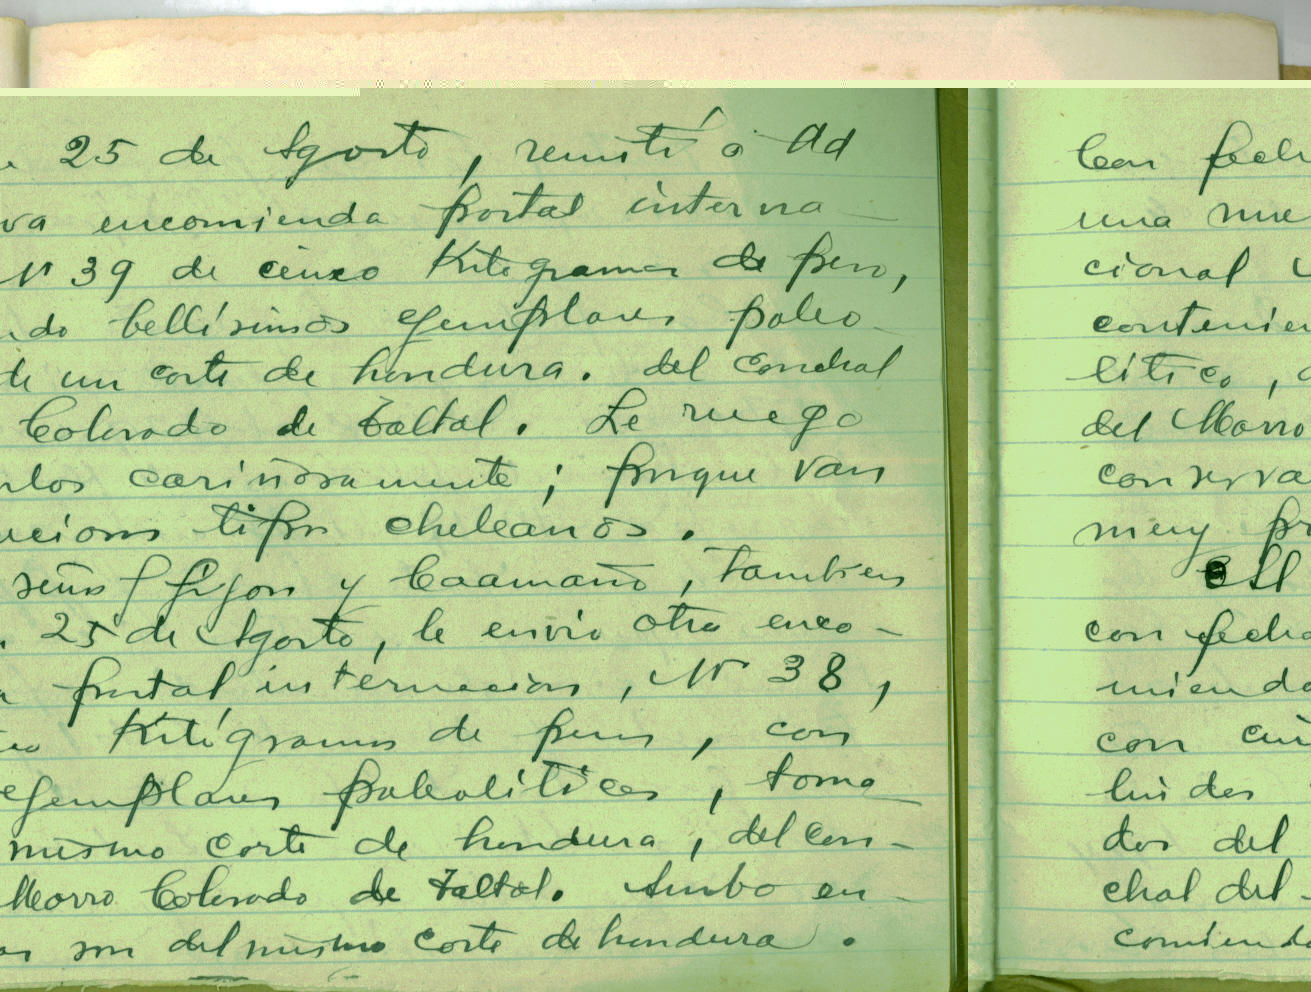 25 de Agosto, remití a Ad
va encomienda postal interna
Nº 39 de cinco Kilogramos de peso,
ndo bellísimos ejemplares paleo-
de un corte de hondura. del conchal
Colorado de Taltal. Le ruego
rlos cariñosamente; porque van
uciosos tipos cheleanos.
señor Jijon y Caamaño, tambien
25 de Agosto, le envio otra enco-
a postal internacion, Nº 38,
co Kilógramos de peso, con
ejemplares paleoliticos, toma
mismo corte de hondura, del con-
Morro Colorado de Taltal. Ambo en-
as son del mismo corte de hondura.
Con fech
una nue
cional
contenien
lítico,
del Morro
conserva
muy pr
El
con fecha
mienda
con cin
lindos
dos del
chal del
comienda